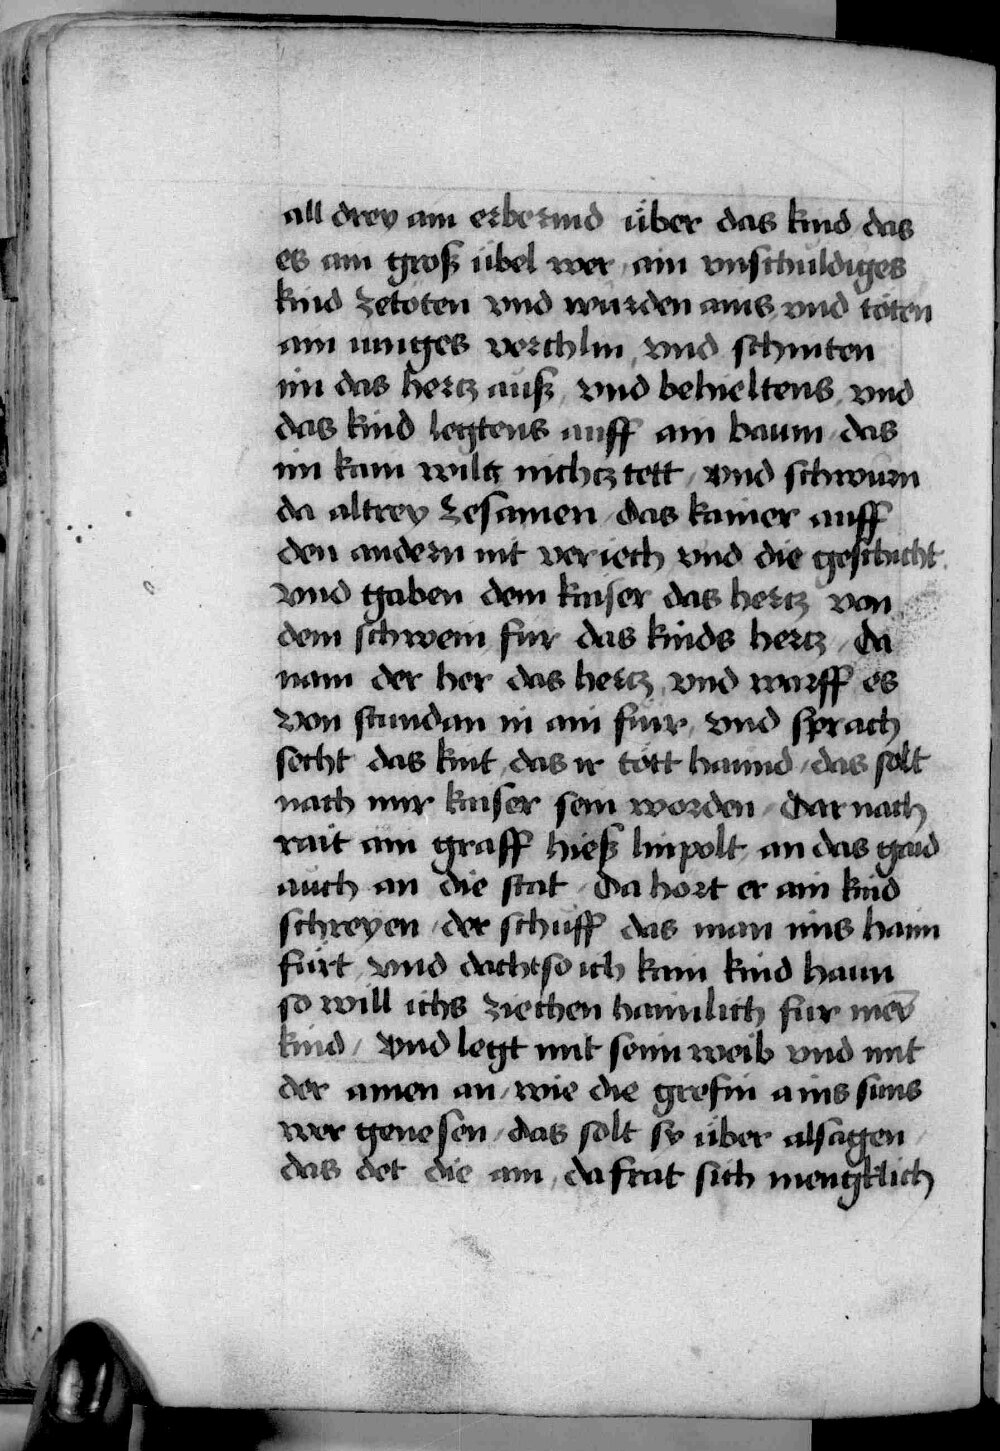 all drey ain erbermd über das kind das
es ain groß übel wer / ain vnschuldiges
kind zetöten vnd wurden ains vnd töten
ain iunges verchlin / vnd schniten
im das hertz auß / vnd behieltens / vnd
das kind legtens auff ain baum / das
im kain wilg nichtz tett / vnd schwurn
da altrey zesamen / das kainer auff
den andern nit veriech vnd die geschicht
vnd gaben dem kaiser das hertz von
dem schwein für das kinds hertz / Da
nam der her das hertz / vnd warff es
von stundan in ain fuir / vnd sprach
secht das kint / das ir tött haund / das solt
nach mir kaiser sein worden / Dar nach
rait ain graff hieß linpolt / an das gaid
auch an die stat / Da hort er ain kind
schreyen / der schuff das man ims haim
fürt / vnd dacht so ich kain kind haun
so will ichs ziechen haimlich für mei̅
kind / Vnd legt mit seim weib vnd mit
der amen an / wie die grefin ains suns
wer genesen / das solt sy über alsagen /
das det die am / da frat sich mengklich